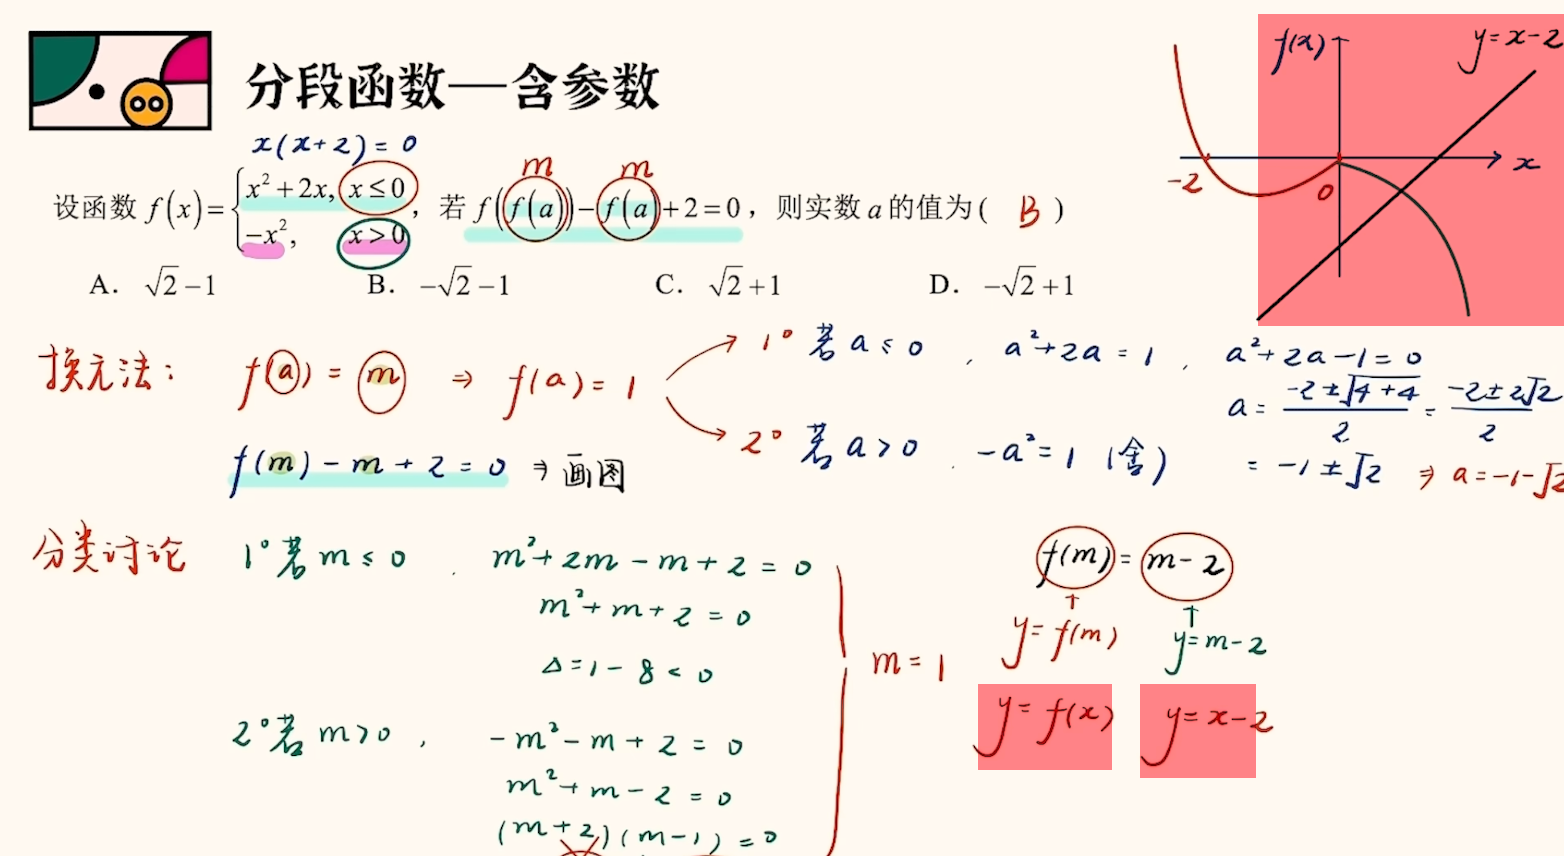 分段函数—含参数
x(x+2)=0
m m
设函数 f(x)={x²+2x, x≤0
-x², x>0
，若 f(f(a))-f(a)+2=0，则实数 a 的值为( B )
A. √2-1 B. -√2-1 C. √2+1 D. -√2+1
f(x) y=x-2
-2 0 x
换元法: f(a)=m ⇒ f(a)=1
1° 若 a≤0, a²+2a=1, a²+2a-1=0
a=(-2±√(4+4))/2=(-2±2√2)/2
=-1±√2 ⇒ a=-1-√2
2° 若 a>0, -a²=1 (舍)
f(m)-m+2=0 ⇒ 画图
分类讨论 1° 若 m≤0, m²+2m-m+2=0
m²+m+2=0
Δ=1-8<0
2° 若 m>0, -m²-m+2=0
m²+m-2=0
(m+2)(m-1)=0
m=1
f(m)=m-2
↑ ↑
y=f(m) y=m-2
y=f(x) y=x-2